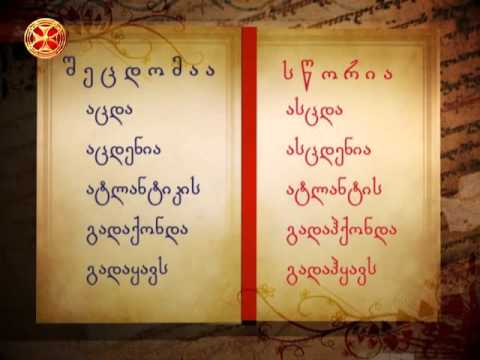 შეცდომაა
აცდა
აცდენია
ატლანტიკის
გადაქონდა
გადაყავს
სწორია
ასცდა
ასცდენია
ატლანტის
გადაჰქონდა
გადაჰყავს